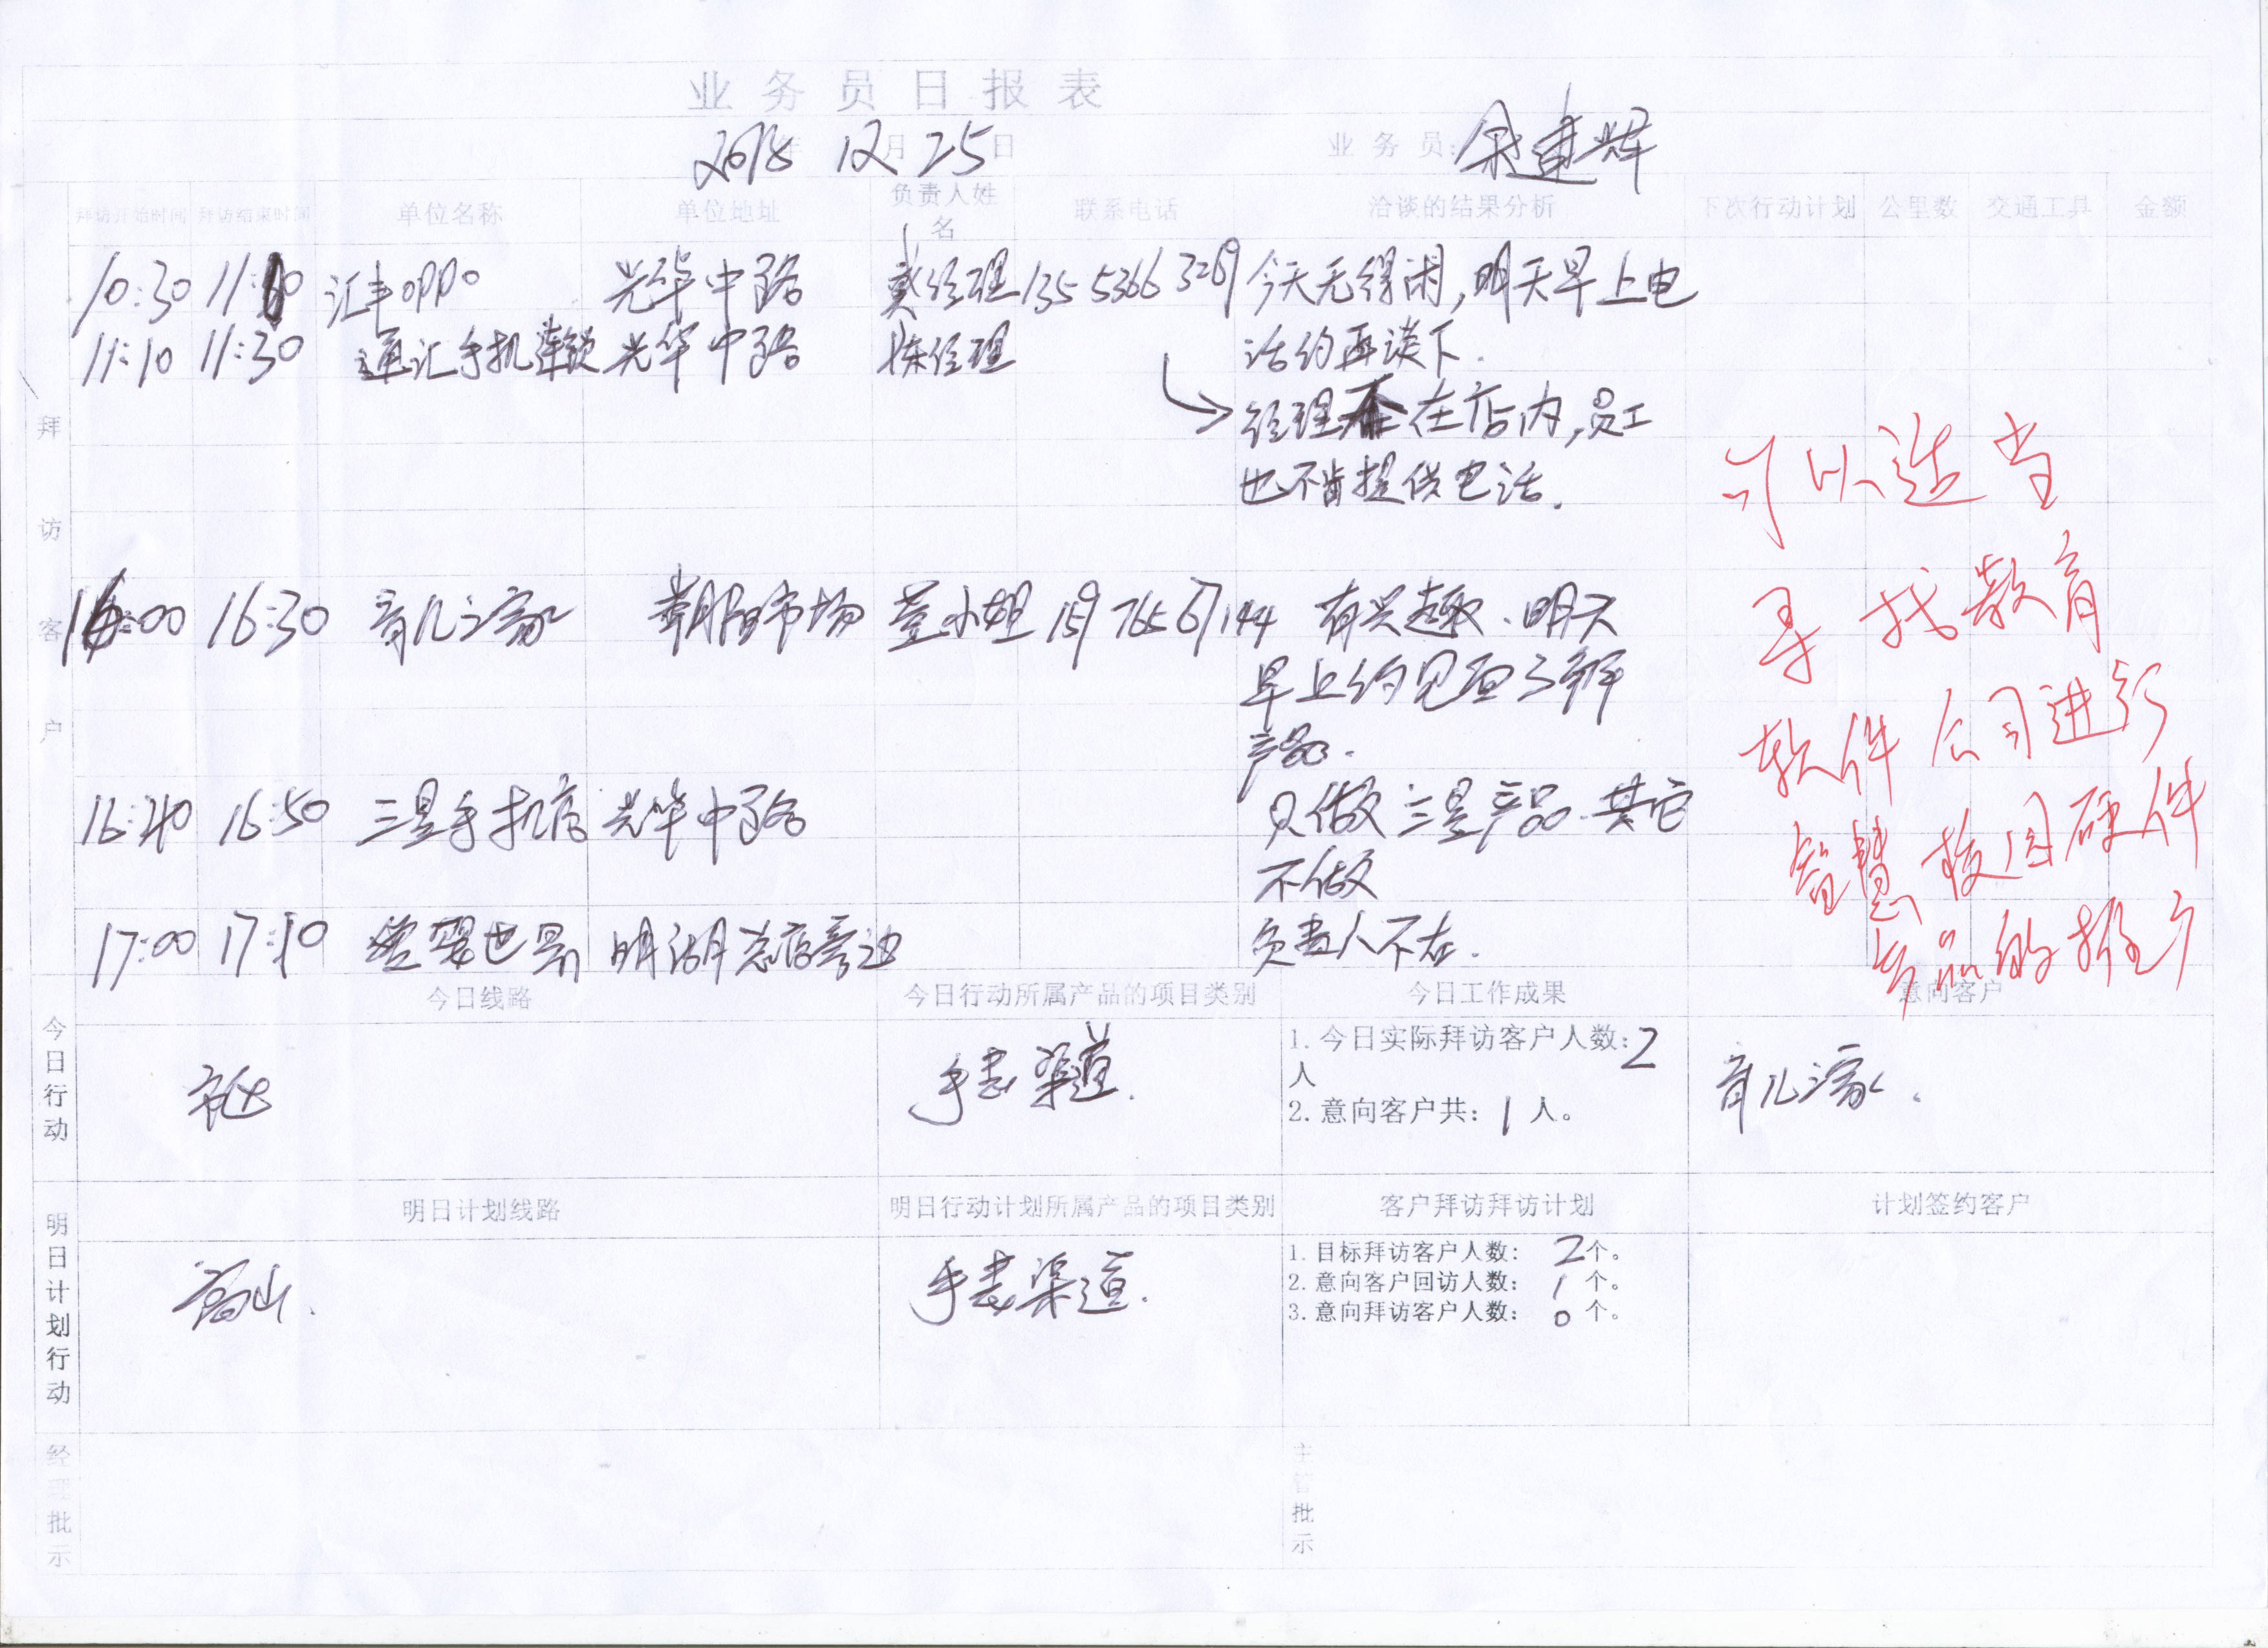 业务员日报表
2018年 12月 25日 业务员:余建辉
拜访开始时间 拜访结束时间 单位名称 单位地址 负责人姓名 联系电话 洽谈的结果分析 下次行动计划 公里数 交通工具 金额
拜访客户
10:30 汇丰oppo 光华中路 经理 今天无得闲,明天早上电
话约再谈下.
11:10 11:30 通汇手机连锁 光华中路 陈经理
经理不在店内,员工
也不肯提供电话.
16:00 16:30 育儿之家 市场 小姐 有兴趣、明天
早上约见面了解
产品.
16:40 16:50 三星手机店 光华中路 只做三星产品.其它
不做
17:00 17:10 婴世界 明湖总店旁边 负责人不在.
可以适当
寻找教育
软件公司进行
智慧校园硬件
产品的推广
今日行动
今日线路 今日行动所属产品的项目类别 今日工作成果 意向客户
市区 手表渠道. 1.今日实际拜访客户人数:2
人
2.意向客户共:1人。
育儿之家.
明日计划行动
明日计划线路 明日行动计划所属产品的项目类别 客户拜访拜访计划 计划签约客户
手表渠道. 1.目标拜访客户人数: 2个。
2.意向客户回访人数: 1个。
3.意向拜访客户人数: 0个。
经理批示
主管批示